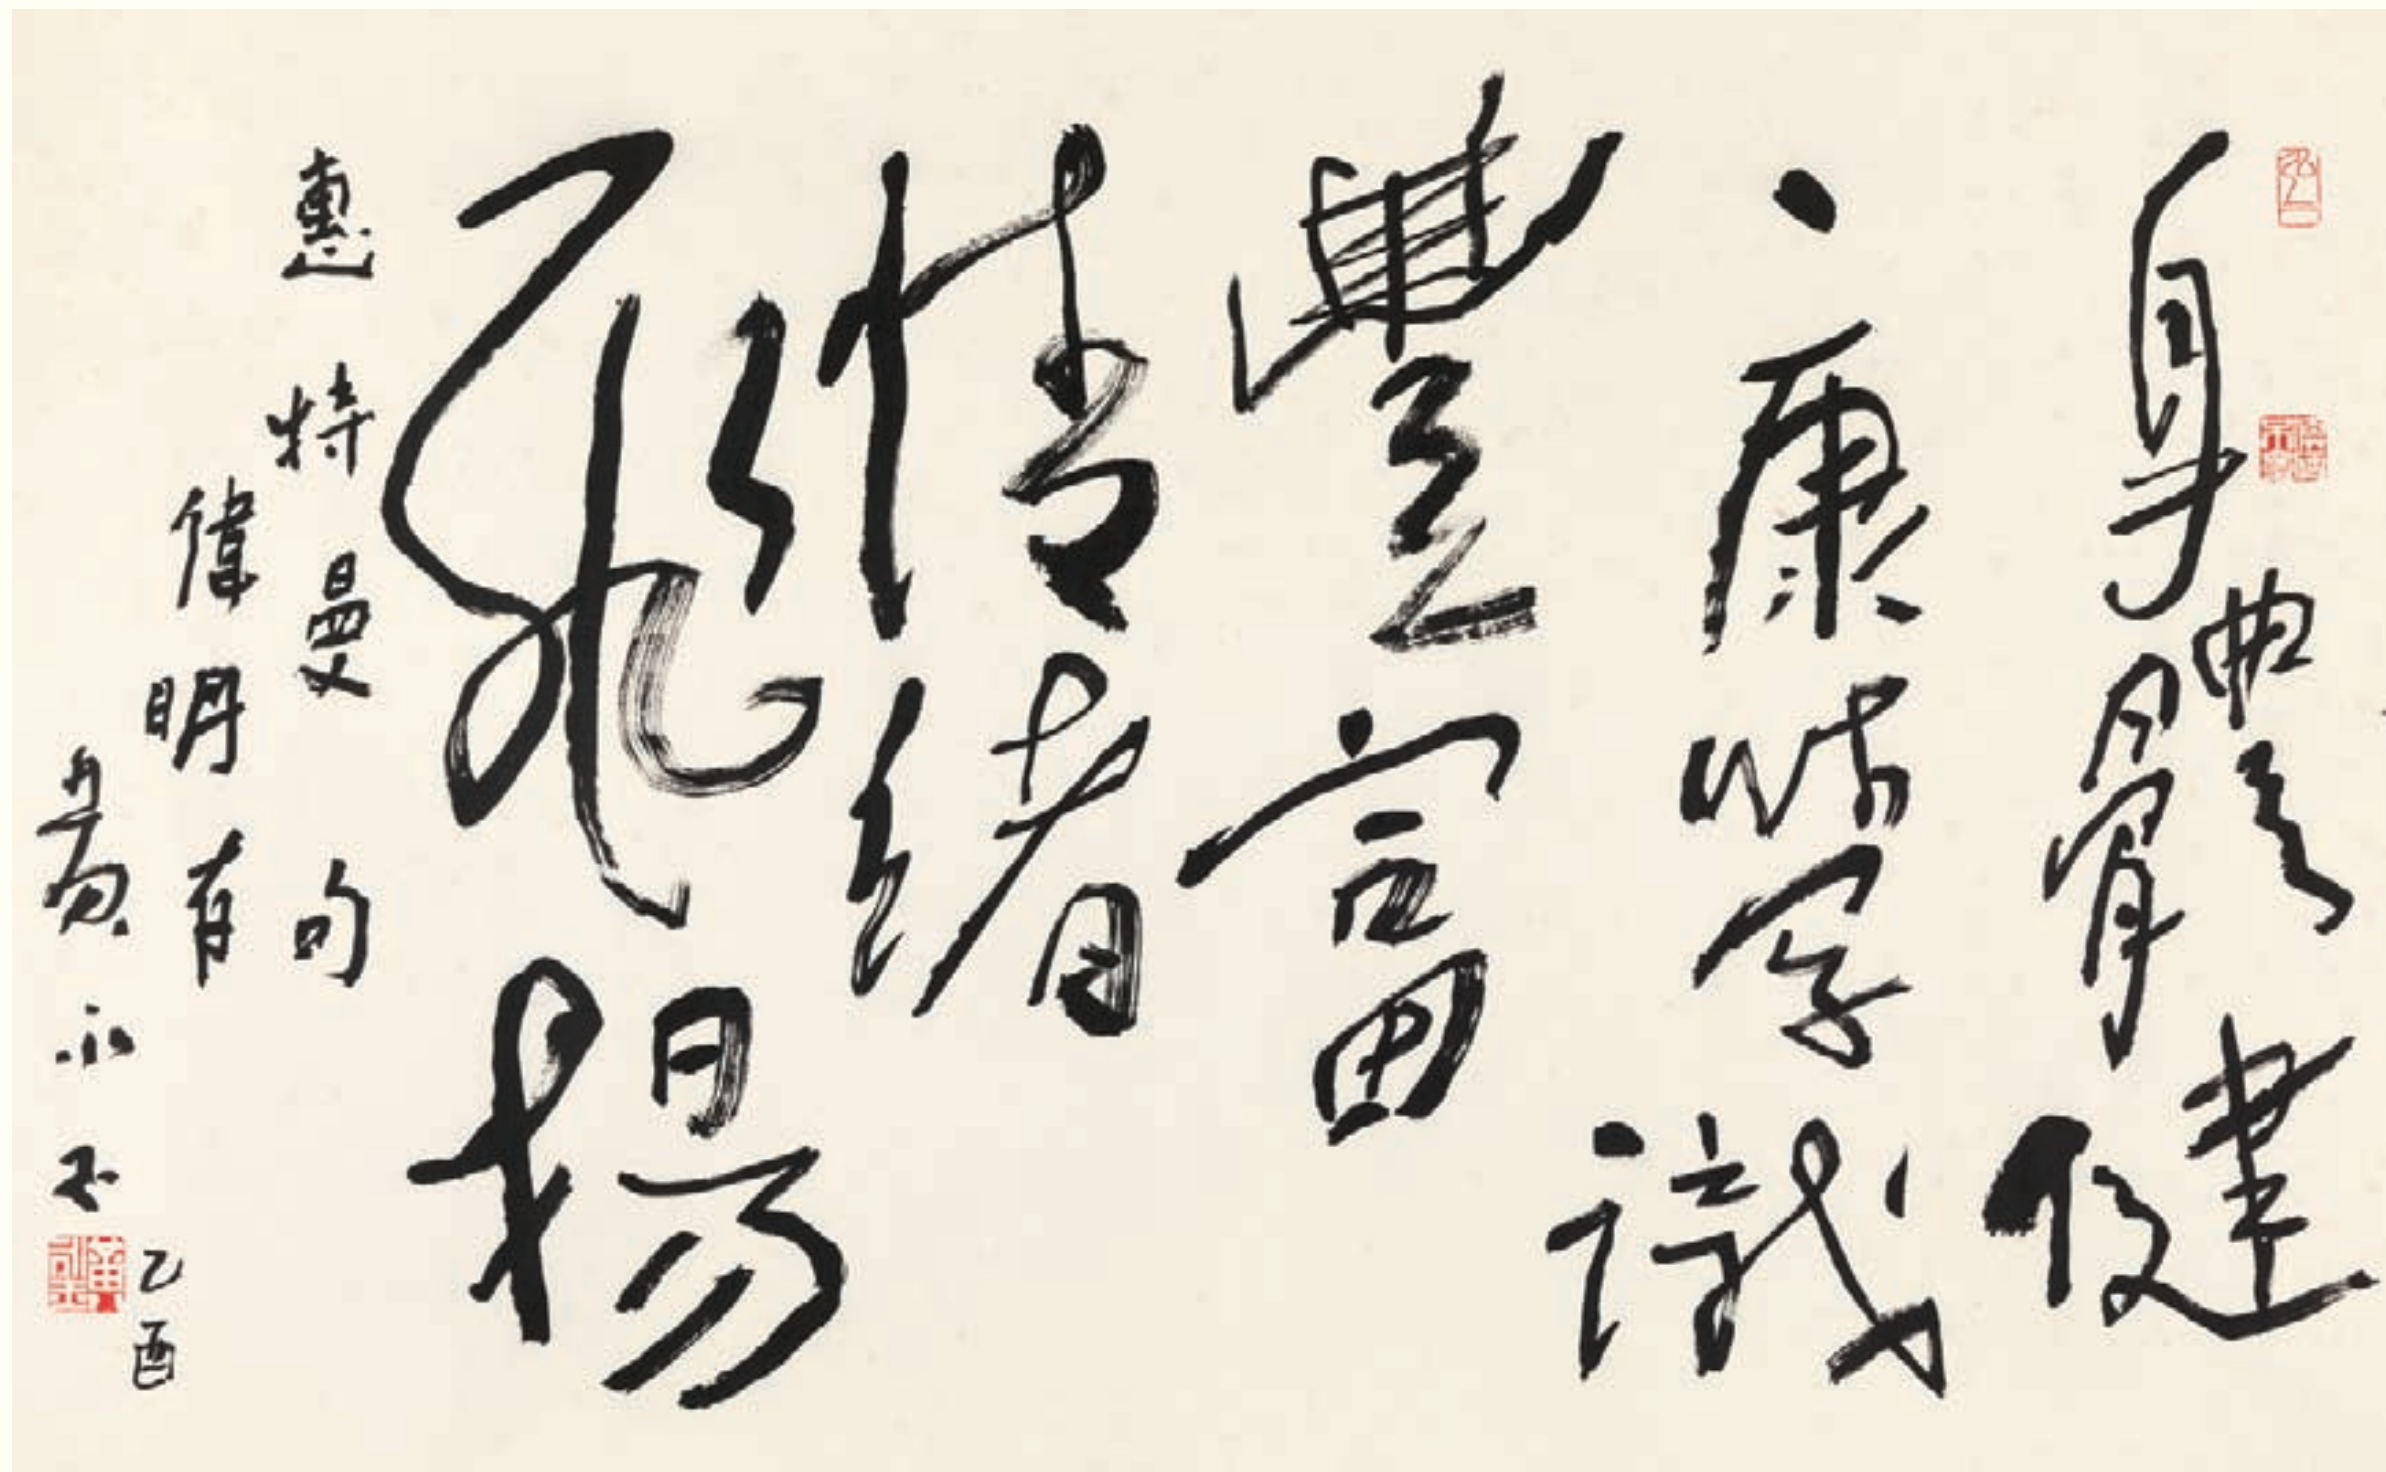 身體健
康學識
豐富
情緒
飛揚
惠特曼句
偉明有
黃永玉
乙酉